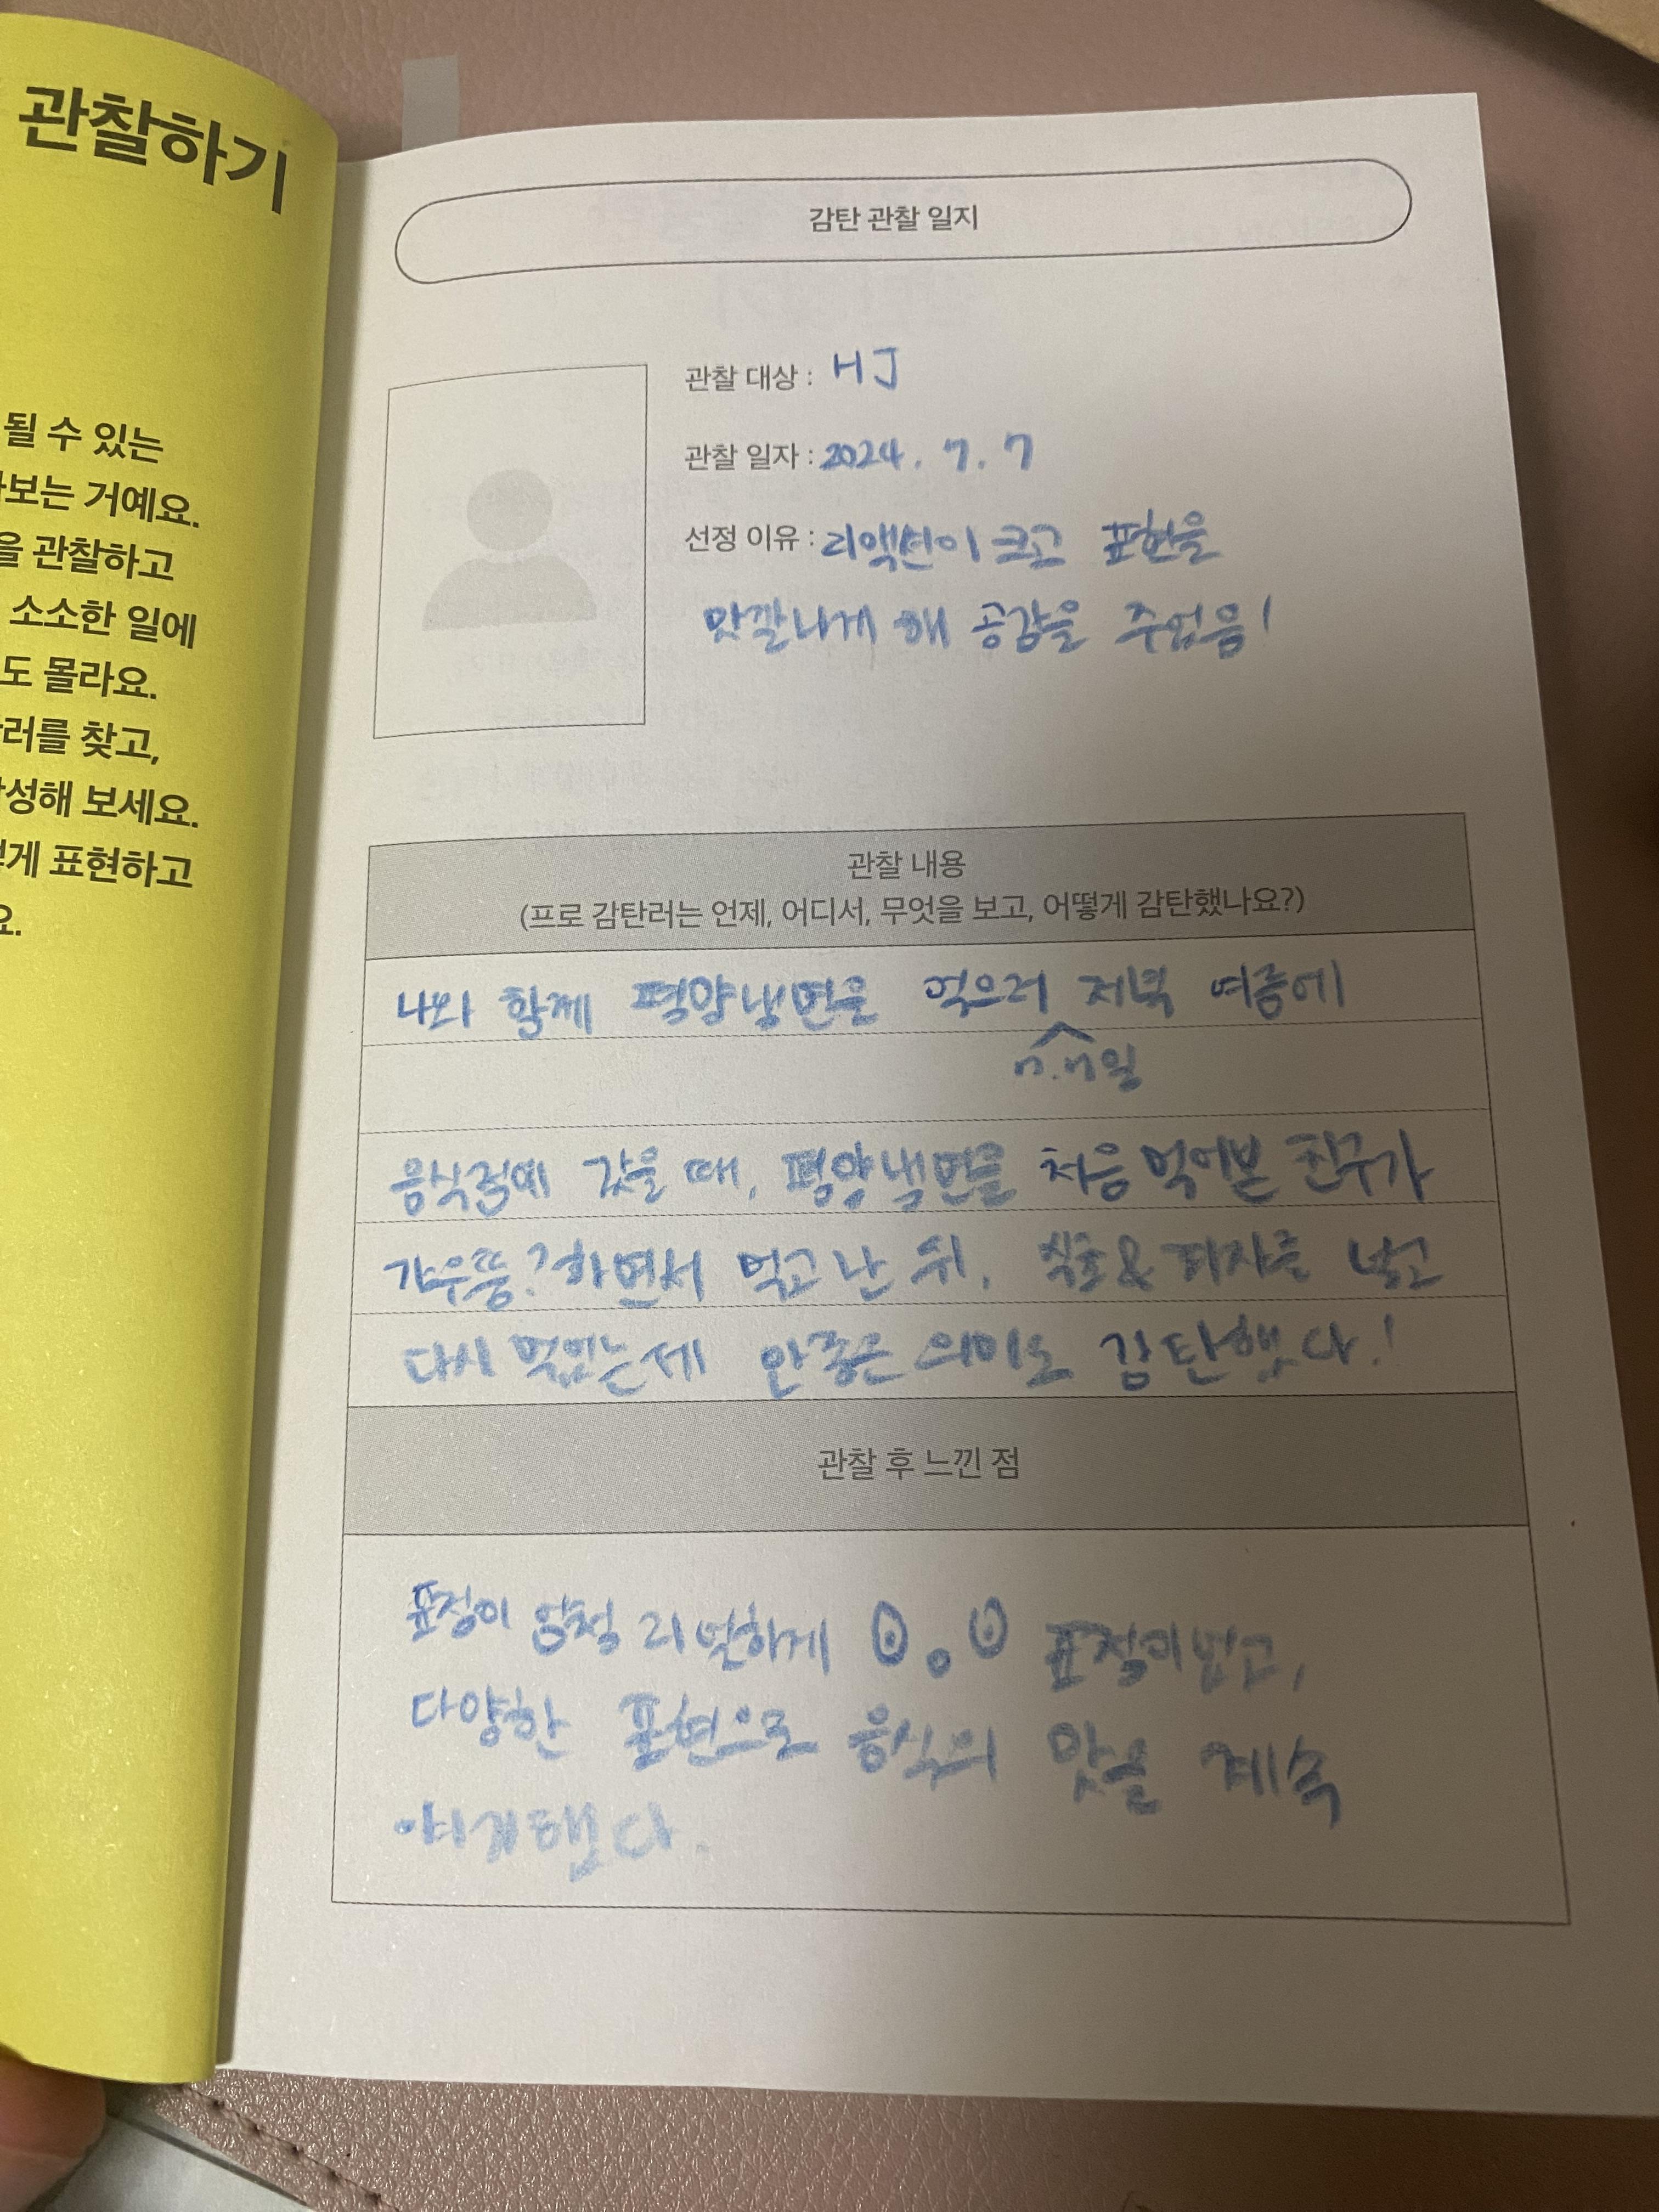 관찰하기
될 수 있는
보는 거예요.
을 관찰하고
소소한 일에
도 몰라요.
러를 찾고,
성해 보세요.
게 표현하고
요.
감탄 관찰 일지
관찰 대상 : HJ
관찰 일자 : 2024. 7. 7
선정 이유 : 리액션이 크고 표현을
맛깔나게 해 공감을 주었음!
관찰 내용
(프로 감탄러는 언제, 어디서, 무엇을 보고, 어떻게 감탄했나요?)
나와 함께 평양냉면을 먹으러 저녁 여름에
7.7일
음식점에 갔을 때, 평양냉면을 처음 먹어본 친구가
갸우뚱?하면서 먹고 난 뒤, 식초& 겨자를 넣고
다시 먹었는데 안좋은 의미로 감탄했다!
관찰 후 느낀 점
표정이 엄청 리얼하게 표정이었고,
다양한 표현으로 음식의 맛을 계속
얘기했다.